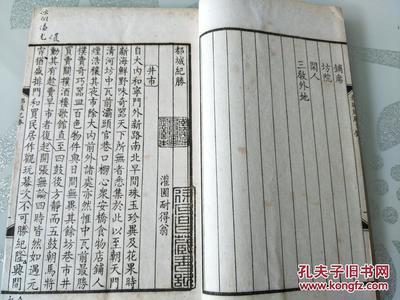 鋪席
坊院
閑人
三教外地
都城紀勝
灌圃耐得翁
井市
自大内和寧門外新路南北早間珠玉珍異及花果時
新海鮮野味奇器天下所無者悉集於此以至朝天門
清河坊中瓦前灞頭官巷口棚心衆安橋食物店鋪人
煙浩穰其夜市除大内前外諸處亦然惟中瓦前最勝
撲賣奇巧器皿百色物件與日間無異其餘坊巷市井
買賣關撲酒樓歌館直至四鼓後方靜而五鼓朝馬將
動其有趁賣早市者復起開張無論四時皆然如遇元
宵猶盛排門和買民居作觀玩幕次不可勝紀隆興間
孔夫子旧书网